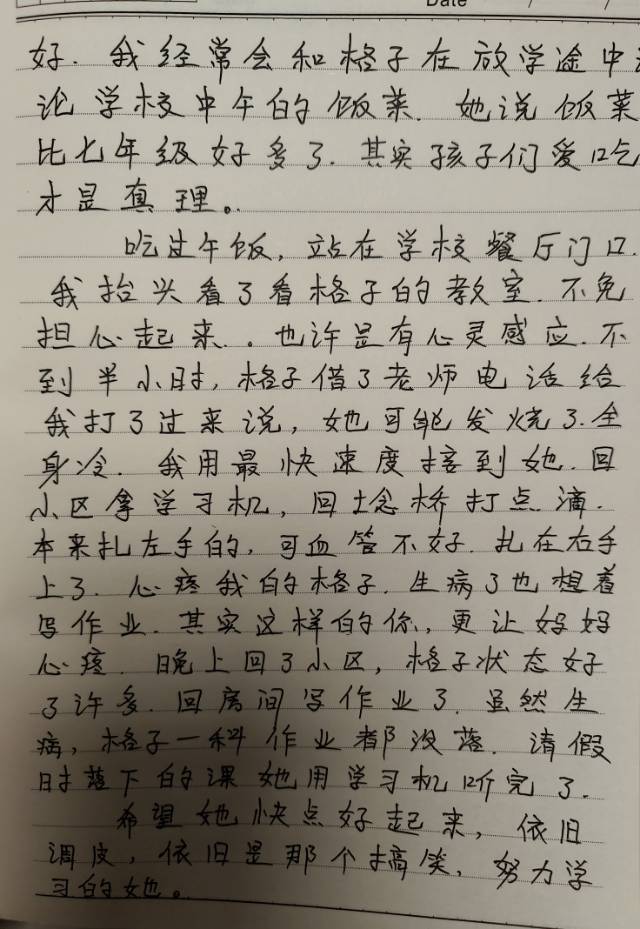 Date / /
好. 我经常会和格子在放学途中
论学校中午的饭菜. 她说饭菜
比七年级好多了. 其实孩子们爱吃
才是真理。
吃过午饭, 站在学校餐厅门口.
我抬头看了看格子的教室. 不免
担心起来. . 也许是有心灵感应. 不
到半小时, 格子借了老师电话给
我打了过来说, 她可能发烧了. 全
身冷. 我用最快速度接到她. 回
小区拿学习机, 回埝桥打点滴.
本来扎左手的, 可血管不好. 扎在右手
上了. 心疼我的格子. 生病了也想着
写作业. 其实这样的你, 更让妈妈
心疼. 晚上回了小区, 格子状态好
了许多. 回房间写作业了. 虽然生
病, 格子一科作业都没落. 请假
时落下的课她用学习机听完了.
希望她快点好起来, 依旧
调皮, 依旧是那个搞笑, 努力学
习的她。